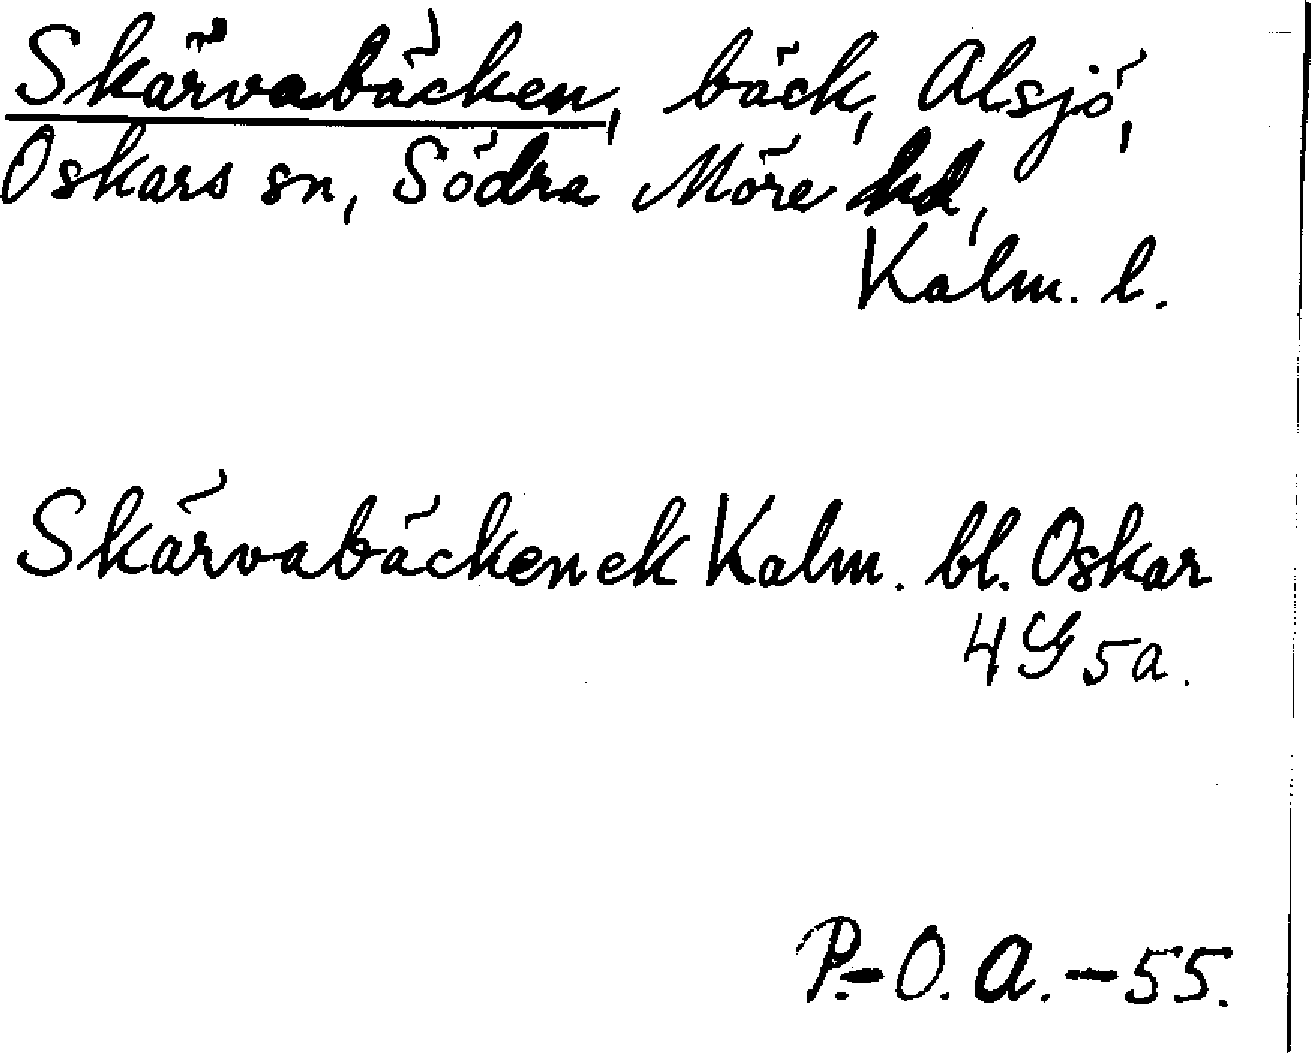 Skärvabäcken, bäck, Alsjö,
Oskars sn, Södra Möre hd,
Kalm. l.
Skärvabäcken ek Kalm. bl. Oskar
4G 5a.
P.-O. A. - 55.